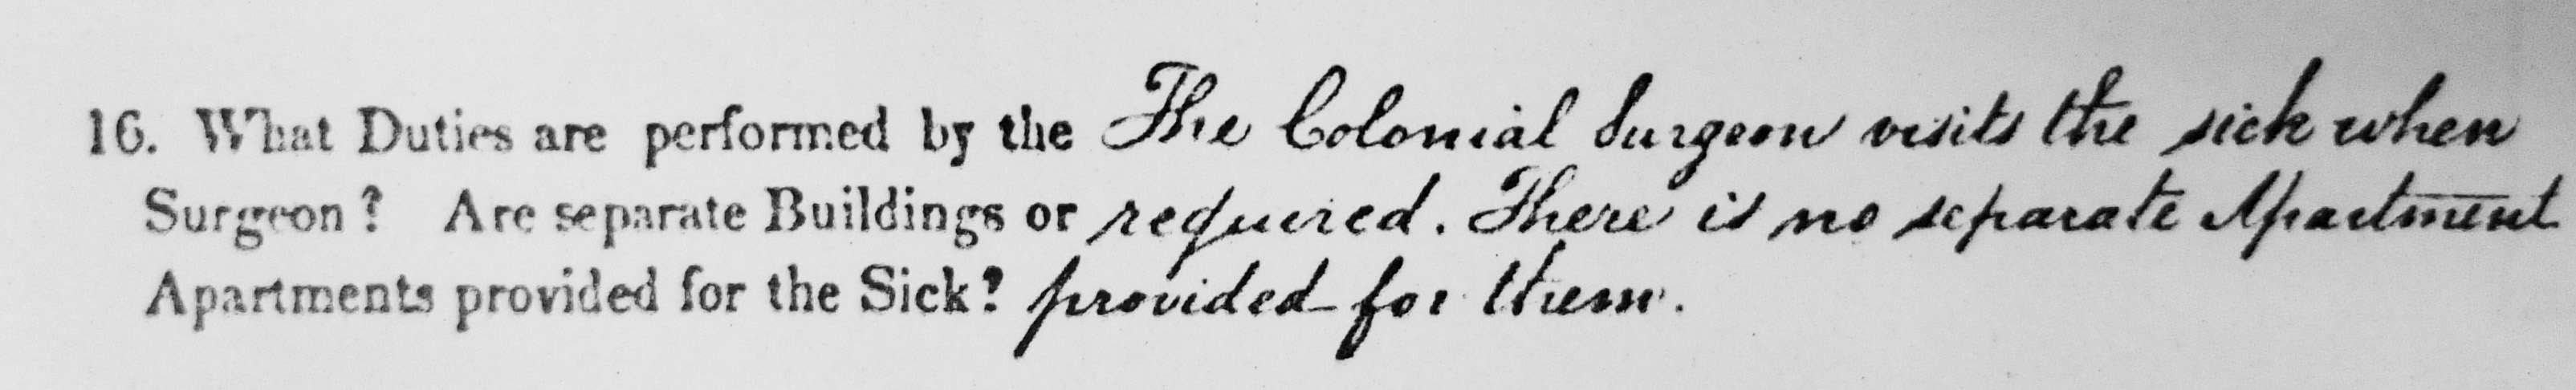 16. What Duties are performed by the The Colonial Surgeon visits the sick when
Surgeon? Are separate Buildings or required. There is no separate Apartment
Apartments provided for the Sick? provided for them.